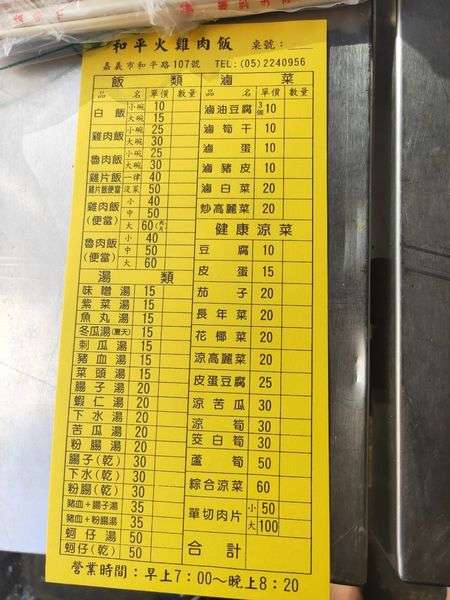 和平火雞肉飯 桌號:
嘉義市和平路107號 TEL:(05)2240956
飯類
品名 單價 數量
白飯 小碗 10
大碗 15
雞肉飯 小碗 25
大碗 30
魯肉飯 小碗 25
大碗 30
雞片飯 一律 40
雞片飯便當 沒菜 50
雞肉飯(便當) 小 40
中 50
大 60
魯肉飯(便當) 小 40
中 50
大 60
湯類
味噌湯 15
紫菜湯 15
魚丸湯 15
冬瓜湯(夏天) 15
刺瓜湯 15
豬血湯 15
菜頭湯 15
腸子湯 20
蝦仁湯 20
下水湯 20
苦瓜湯 20
粉腸湯 20
腸子(乾) 30
下水(乾) 30
粉腸(乾) 30
豬血+腸子湯 35
豬血+粉腸湯 35
蚵仔湯 50
蚵仔(乾) 50
滷菜
品名 單價 數量
滷油豆腐 3個 10
滷筍干 10
滷蛋 10
滷豬皮 10
滷白菜 20
炒高麗菜 20
健康涼菜
豆腐 10
皮蛋 15
茄子 20
長年菜 20
花椰菜 20
涼高麗菜 20
皮蛋豆腐 25
涼苦瓜 30
涼筍 30
茭白筍 30
蘆筍 50
綜合涼菜 60
單切肉片 小 50
大 100
合計
營業時間:早上7:00~晚上8:20